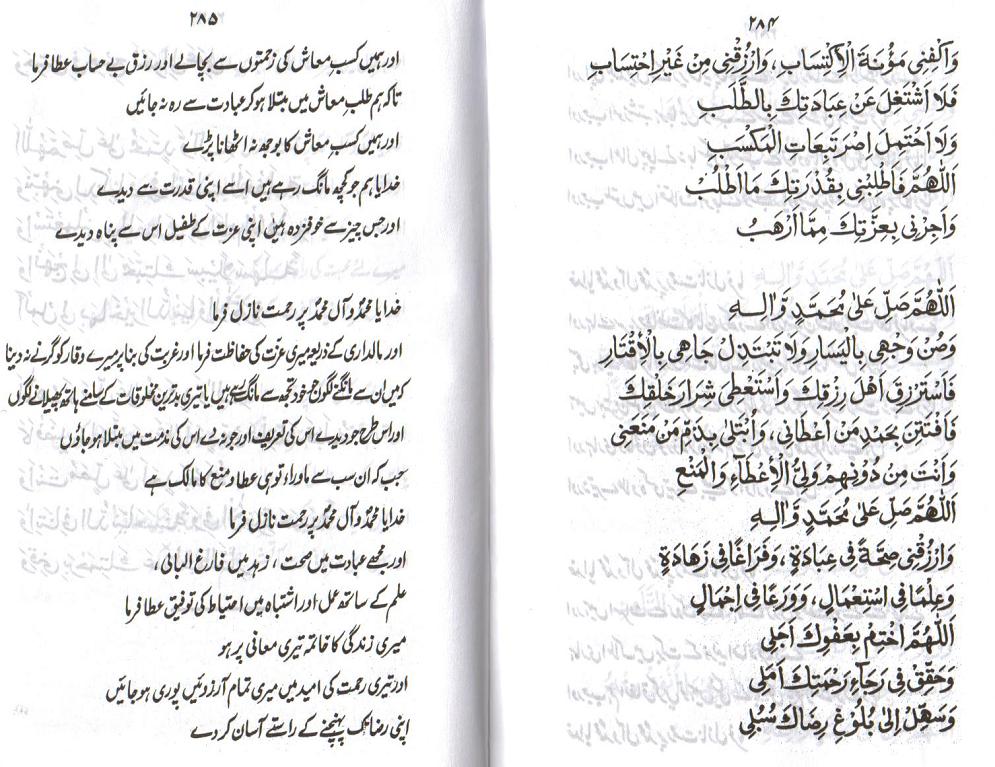 ۲۸۴
وَاكْفِنِي مَؤُنَةَ الْاِكْتِسَابِ، وَارْزُقْنِي مِنْ غَيْرِ احْتِسَابٍ
فَلَا اَشْتَغِلَ عَنْ عِبَادَتِكَ بِالطَّلَبِ
وَلَا اَحْتَمِلَ اِصْرَ تَبِعَاتِ الْمَكْسَبِ
اَللّٰهُمَّ فَاَطْلِبْنِي بِقُدْرَتِكَ مَا اَطْلُبُ
وَاَجِرْنِي بِعِزَّتِكَ مِمَّا اَرْهَبُ
اَللّٰهُمَّ صَلِّ عَلٰى مُحَمَّدٍ وَّاٰلِهٖ
وَصُنْ وَجْهِي بِالْيَسَارِ وَلَا تَبْتَذِلْ جَاهِي بِالْاِقْتَارِ
فَاَسْتَرْزِقَ اَهْلَ رِزْقِكَ وَاَسْتَعْطِيَ شِرَارَ خَلْقِكَ
فَاَفْتَتِنَ بِحَمْدِ مَنْ اَعْطَانِي، وَاُبْتَلٰى بِذَمِّ مَنْ مَنَعَنِي
وَاَنْتَ مِنْ دُوْنِهِمْ وَلِيُّ الْاِعْطَآءِ وَالْمَنْعِ
اَللّٰهُمَّ صَلِّ عَلٰى مُحَمَّدٍ وَّاٰلِهٖ
وَارْزُقْنِي صِحَّةً فِي عِبَادَةٍ، وَفَرَاغًا فِي زَهَادَةٍ
وَعِلْمًا فِي اسْتِعْمَالٍ، وَوَرَعًا فِي اِجْمَالٍ
اَللّٰهُمَّ اخْتِمْ بِعَفْوِكَ اَجَلِي
وَحَقِّقْ فِي رَجَآءِ رَحْمَتِكَ اَمَلِي
وَسَهِّلْ اِلٰى بُلُوْغِ رِضَاكَ سُبُلِي
۲۸۵
اور ہمیں کسبِ معاش کی زحمتوں سے بچالے اور رزق بے حساب عطا فرما
تاکہ ہم طلب معاش میں مبتلا ہوکر عبادت سے رہ نہ جائیں
اور ہمیں کسبِ معاش کا بوجھ نہ اٹھانا پڑے
خدایا ہم جو کچھ مانگ رہے ہیں اسے اپنی قدرت سے دیدے
اور جس چیز سے خوفزدہ ہیں اپنی عزت کے طفیل اس سے پناہ دیدے
خدایا محمدؐ و آل محمدؐ پر رحمت نازل فرما
اور مالداری کے ذریعہ میری عزت کی حفاظت فرما اور غربت کی بنا پر میرے وقار کو گرنے نہ دینا
کہ میں ان سے مانگنے لگوں جو خود تجھ سے مانگ رہے ہیں یا تیری بدترین مخلوقات کے سامنے ہاتھ پھیلانے لگوں
اور اس طرح جو دیدے اس کی تعریف اور جو نہ دے اس کی مذمت میں مبتلا ہوجاؤں
جب کہ ان سب سے ماوراء تو ہی عطا و منع کا مالک ہے
خدایا محمدؐ و آل محمدؐ پر رحمت نازل فرما
اور مجھے عبادت میں صحت، زہد میں فارغ البالی،
علم کے ساتھ عمل اور اشتباہ میں احتیاط کی توفیق عطا فرما
میری زندگی کا خاتمہ تیری معافی پر ہو
اور تیری رحمت کی امید میں میری تمام آرزوئیں پوری ہوجائیں
اپنی رضا تک پہنچنے کے راستے آسان کر دے